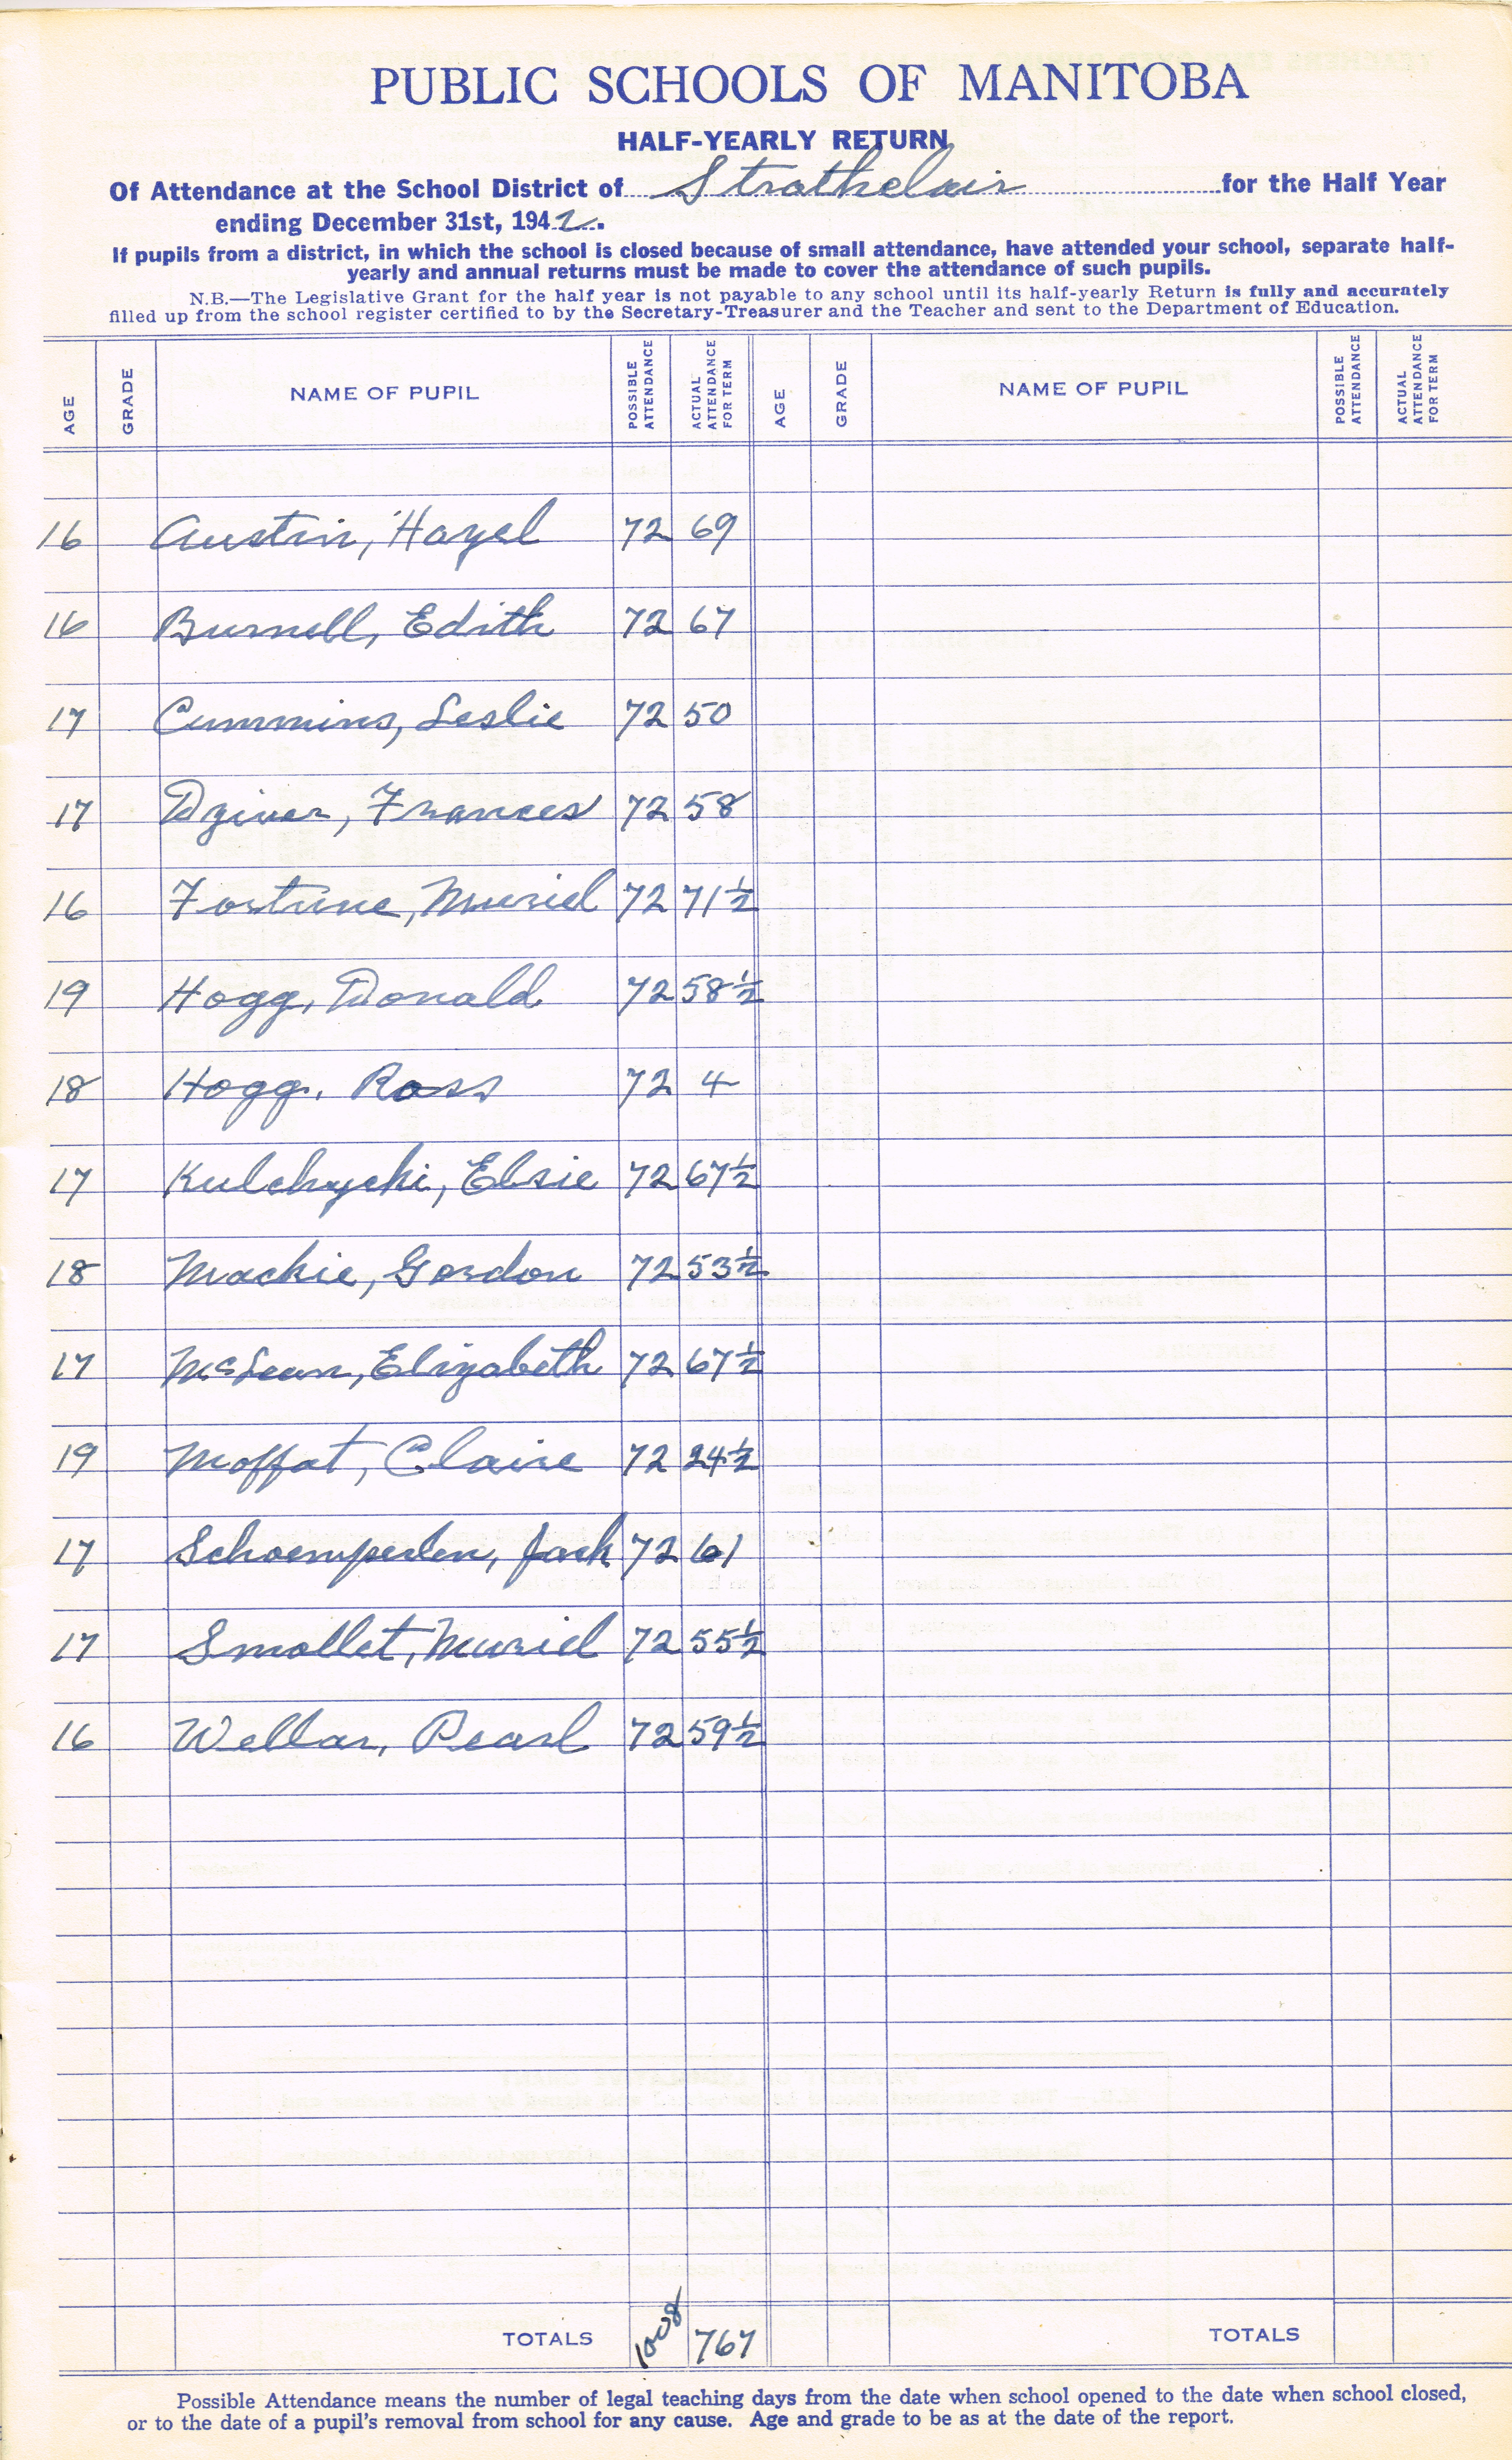 PUBLIC SCHOOLS OF MANITOBA
HALF-YEARLY RETURN
Of Attendance at the School District of Strathclair for the Half Year
ending December 31st, 1942.
If pupils from a district, in which the school is closed because of small attendance, have attended your school, separate half-
yearly and annual returns must be made to cover the attendance of such pupils.
N.B.—The Legislative Grant for the half year is not payable to any school until its half-yearly Return is fully and accurately
filled up from the school register certified to by the Secretary-Treasurer and the Teacher and sent to the Department of Education.
AGE GRADE NAME OF PUPIL POSSIBLE ATTENDANCE ACTUAL ATTENDANCE FOR TERM AGE GRADE NAME OF PUPIL POSSIBLE ATTENDANCE ACTUAL ATTENDANCE FOR TERM
16 Austin, Hazel 72 69
16 Burnell, Edith 72 67
17 Cummins, Leslie 72 50
17 Dziver, Frances 72 58
16 Fortune, Muriel 72 71½
19 Hogg, Donald 72 58½
18 Hogg, Ross 72 4
17 Kulchycki, Elsie 72 67½
18 Mackie, Gordon 72 53½
17 McLean, Elizabeth 72 67½
19 Moffat, Claire 72 24½
17 Schoemperlen, Jack 72 61
17 Smollet, Muriel 72 55½
16 Wellar, Pearl 72 59½
TOTALS 1008 767 TOTALS
Possible Attendance means the number of legal teaching days from the date when school opened to the date when school closed,
or to the date of a pupil's removal from school for any cause. Age and grade to be as at the date of the report.